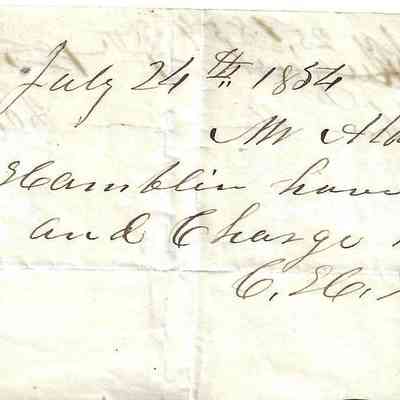 July 24th 1854
Mr
Hamblin have
and Charge
C. H.